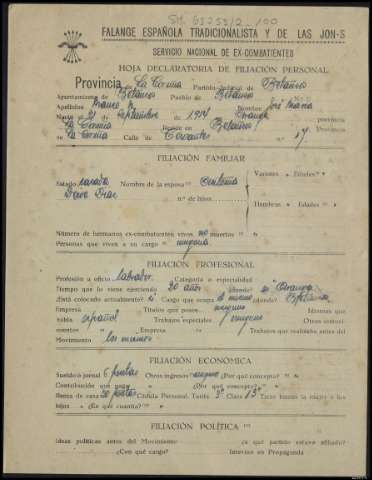 SM. 63253/2_100
FALANGE ESPAÑOLA TRADICIONALISTA Y DE LAS JON-S
SERVICIO NACIONAL DE EX-COMBATIENTES
HOJA DECLARATORIA DE FILIACIÓN PERSONAL
Provincia La Coruña Partido Judicial de Betanzos
Ayuntamiento de Betanzos Pueblo de Betanzos
Apellidos Nombre José María
Nació 21 Septiembre de 1914 provincia
La Coruña Reside en Betanzos Provincia
La Coruña Calle de Cervantes 17
FILIACIÓN FAMILIAR
Estado casado Nombre de la esposa Varones Edades
Diaz n.º de hijos Hembras Edades
Número de hermanos ex-combatientes vivos no muertos
Personas que viven a su cargo ninguna
FILIACIÓN PROFESIONAL
Profesión u oficio labrador Categoría o especialidad
Tiempo que lo viene ejerciendo 20 años ¿dónde? en
Está colocado actualmente? si Cargo que ocupa el mismo ¿dónde? Betanzos
Empresa Títulos que posee ninguno Idiomas que
habla español Trabajos especiales ninguno Otros conoci-
mientos Empresa Trabajos que realizaba antes del
Movimiento los mismos
FILIACIÓN ECONÓMICA
Sueldo o jornal 6 pesetas Otros ingresos ninguno ¿Por qué concepto?
Contribución que paga ¿Por qué concepto?
Renta de casa 20 pesetas Cédula Personal Tarifa 3ª Clase 13ª Tiene bienes la mujer o los
hijos ¿En qué cuantía?
FILIACIÓN POLÍTICA
Ideas políticas antes del Movimiento ¿a qué partido estuvo afiliado?
¿Con qué cargo? Intervino en Propaganda